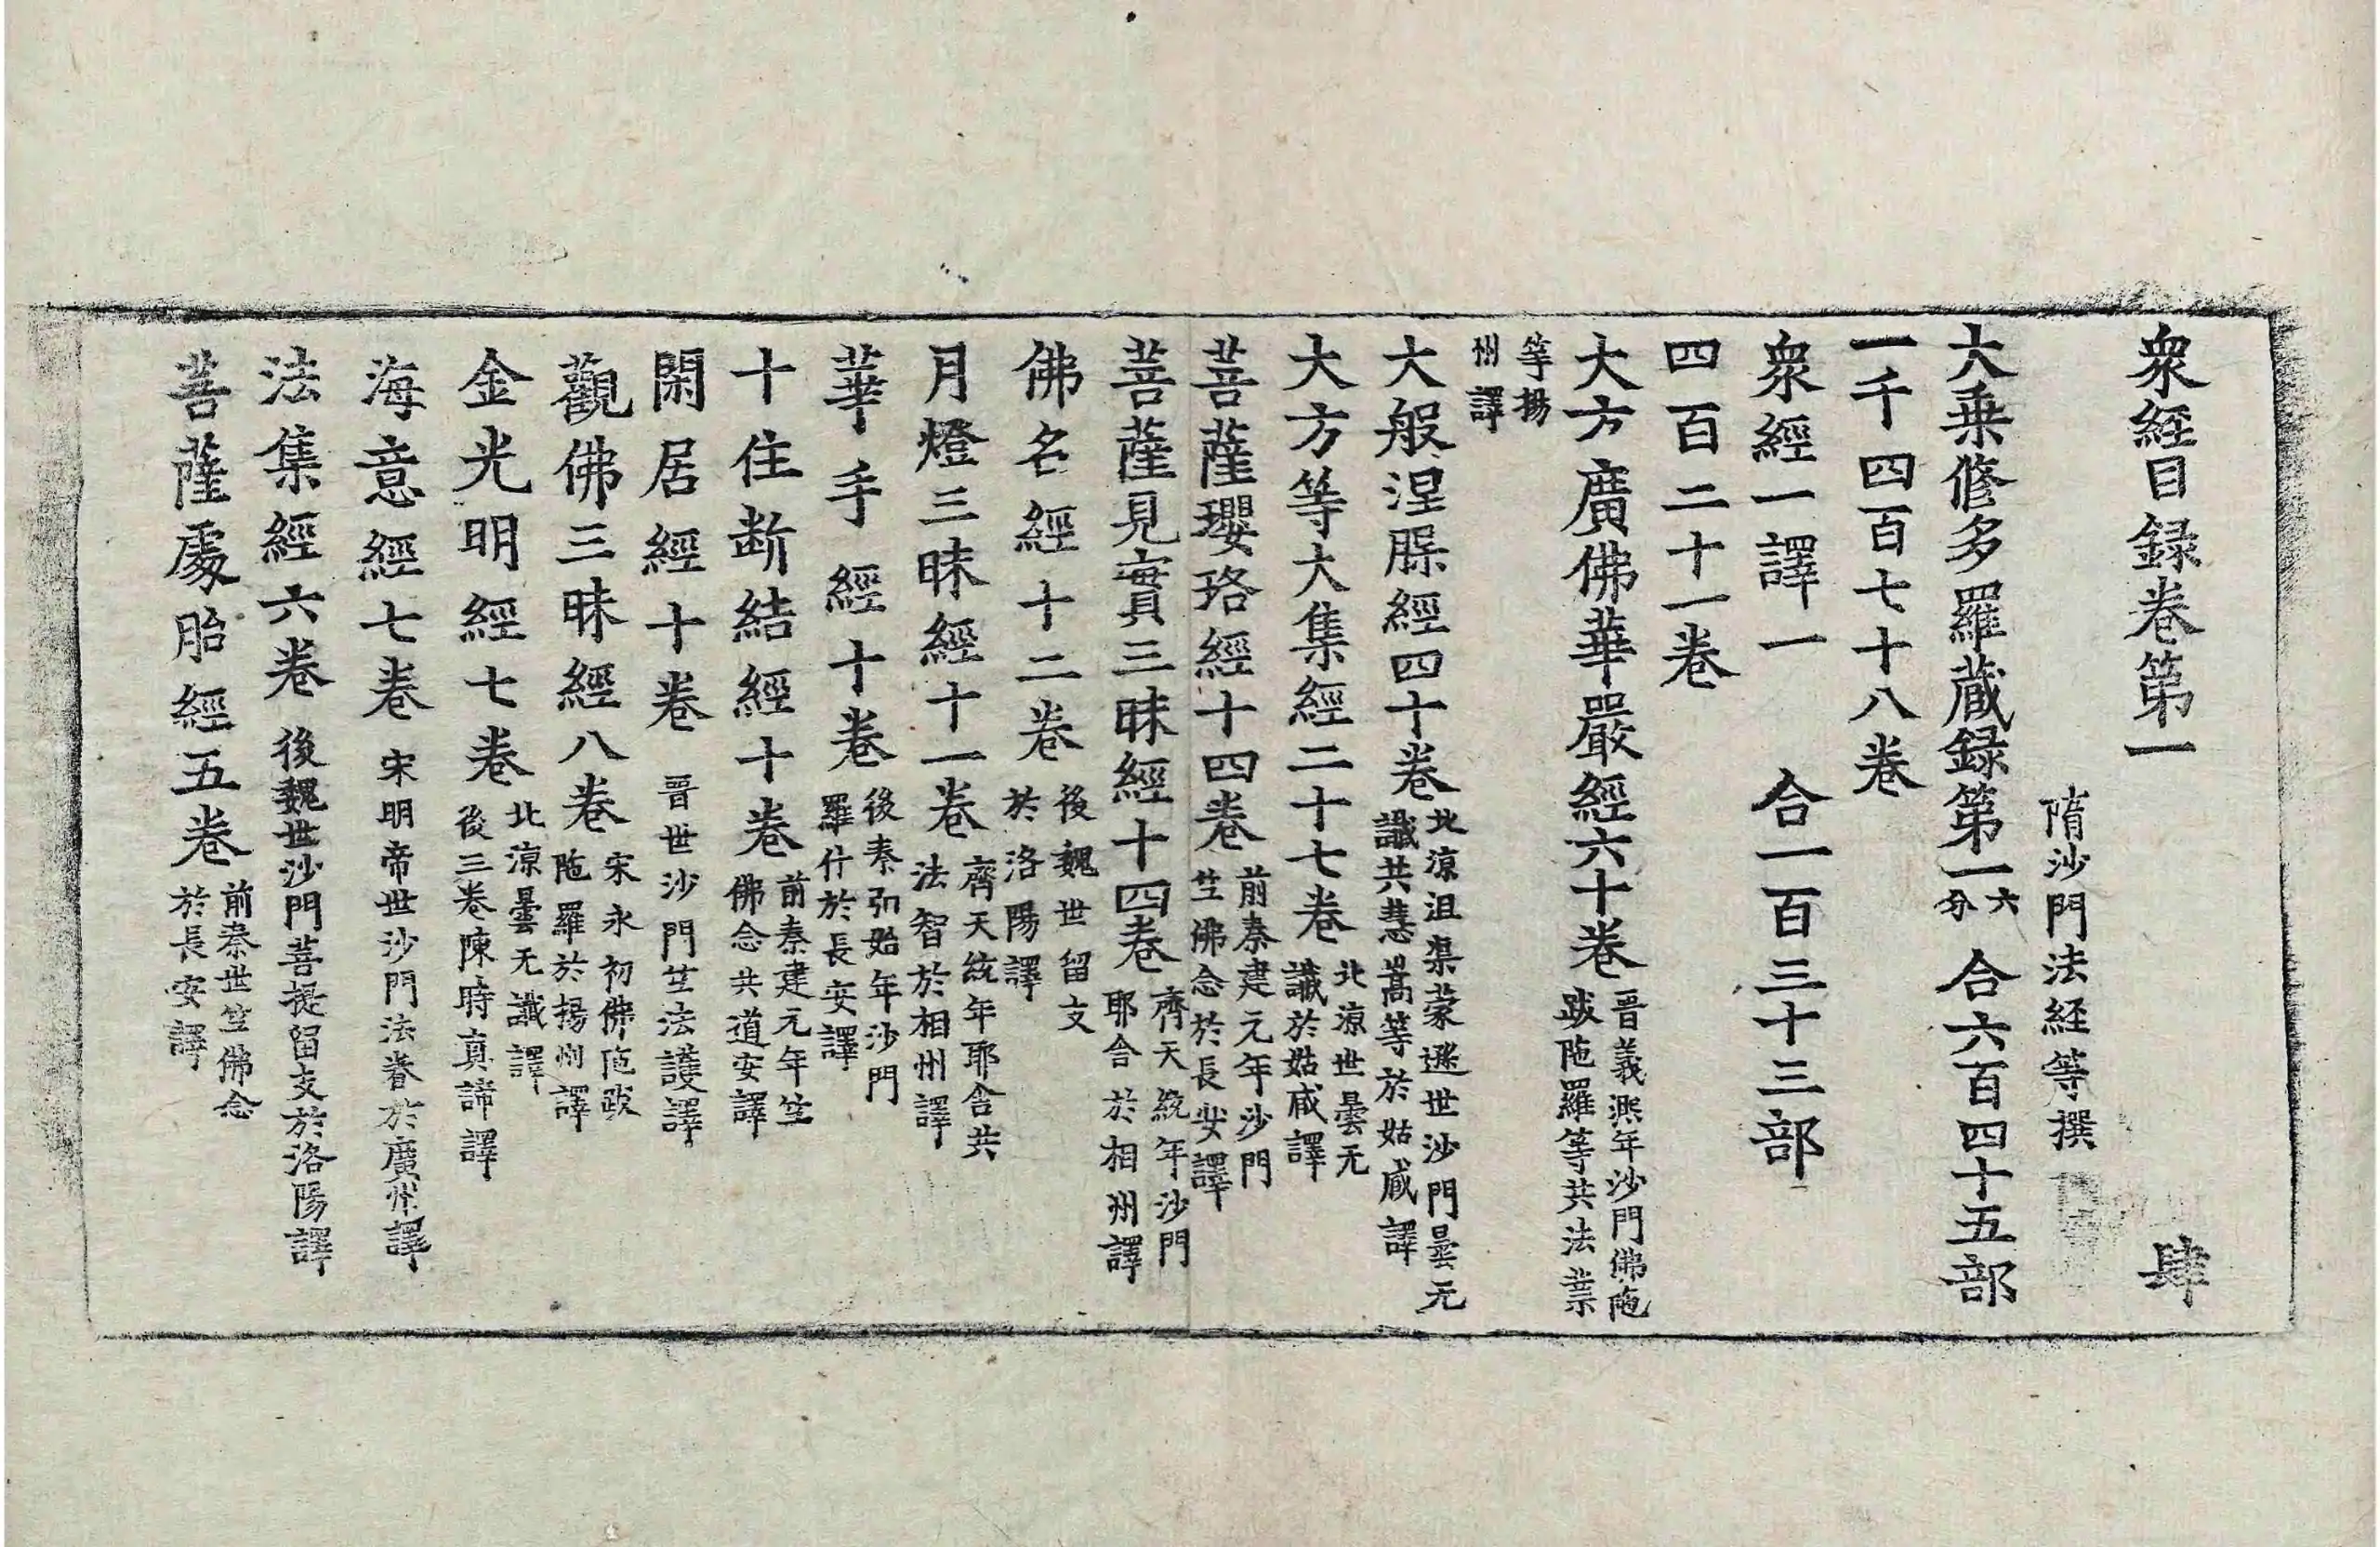 衆經目録卷第一 肆
隋沙門法経等撰
大乗修多羅蔵録第一六分 合六百四十五部
一千四百七十八卷
衆經一譯一 合一百三十三部
四百二十一卷
大方廣佛華嚴經六十卷晋義熈年沙門佛陁跋陁羅等共法業
等揚州譯
大般涅槃經四十卷北涼沮渠蒙遜世沙門曇无讖共慧嵩等於姑臧譯
大方等大集經二十七卷北涼世曇无讖於姑臧譯
菩薩瓔珞經十四卷前秦建元年沙門竺佛念於長安譯
菩薩見實三昧經十四卷齊天統年沙門耶舎於相州譯
佛名經十二卷後魏世留支於洛陽譯
月燈三昧經十一卷齊天統年耶舎共法智於相州譯
華手經十卷後秦弘始年沙門羅什於長安譯
十住断結經十卷前秦建元年竺佛念共道安譯
閑居經十卷晋世沙門竺法護譯
觀佛三昧經八卷宋永初佛陁跋陁羅於揚州譯
金光明經七卷北涼曇无讖譯後三卷陳時真諦譯
海意經七卷宋明帝世沙門法眷於廣州譯
法集經六卷後魏世沙門菩提留支於洛陽譯
菩薩處胎經五卷前秦世竺佛念於長安譯